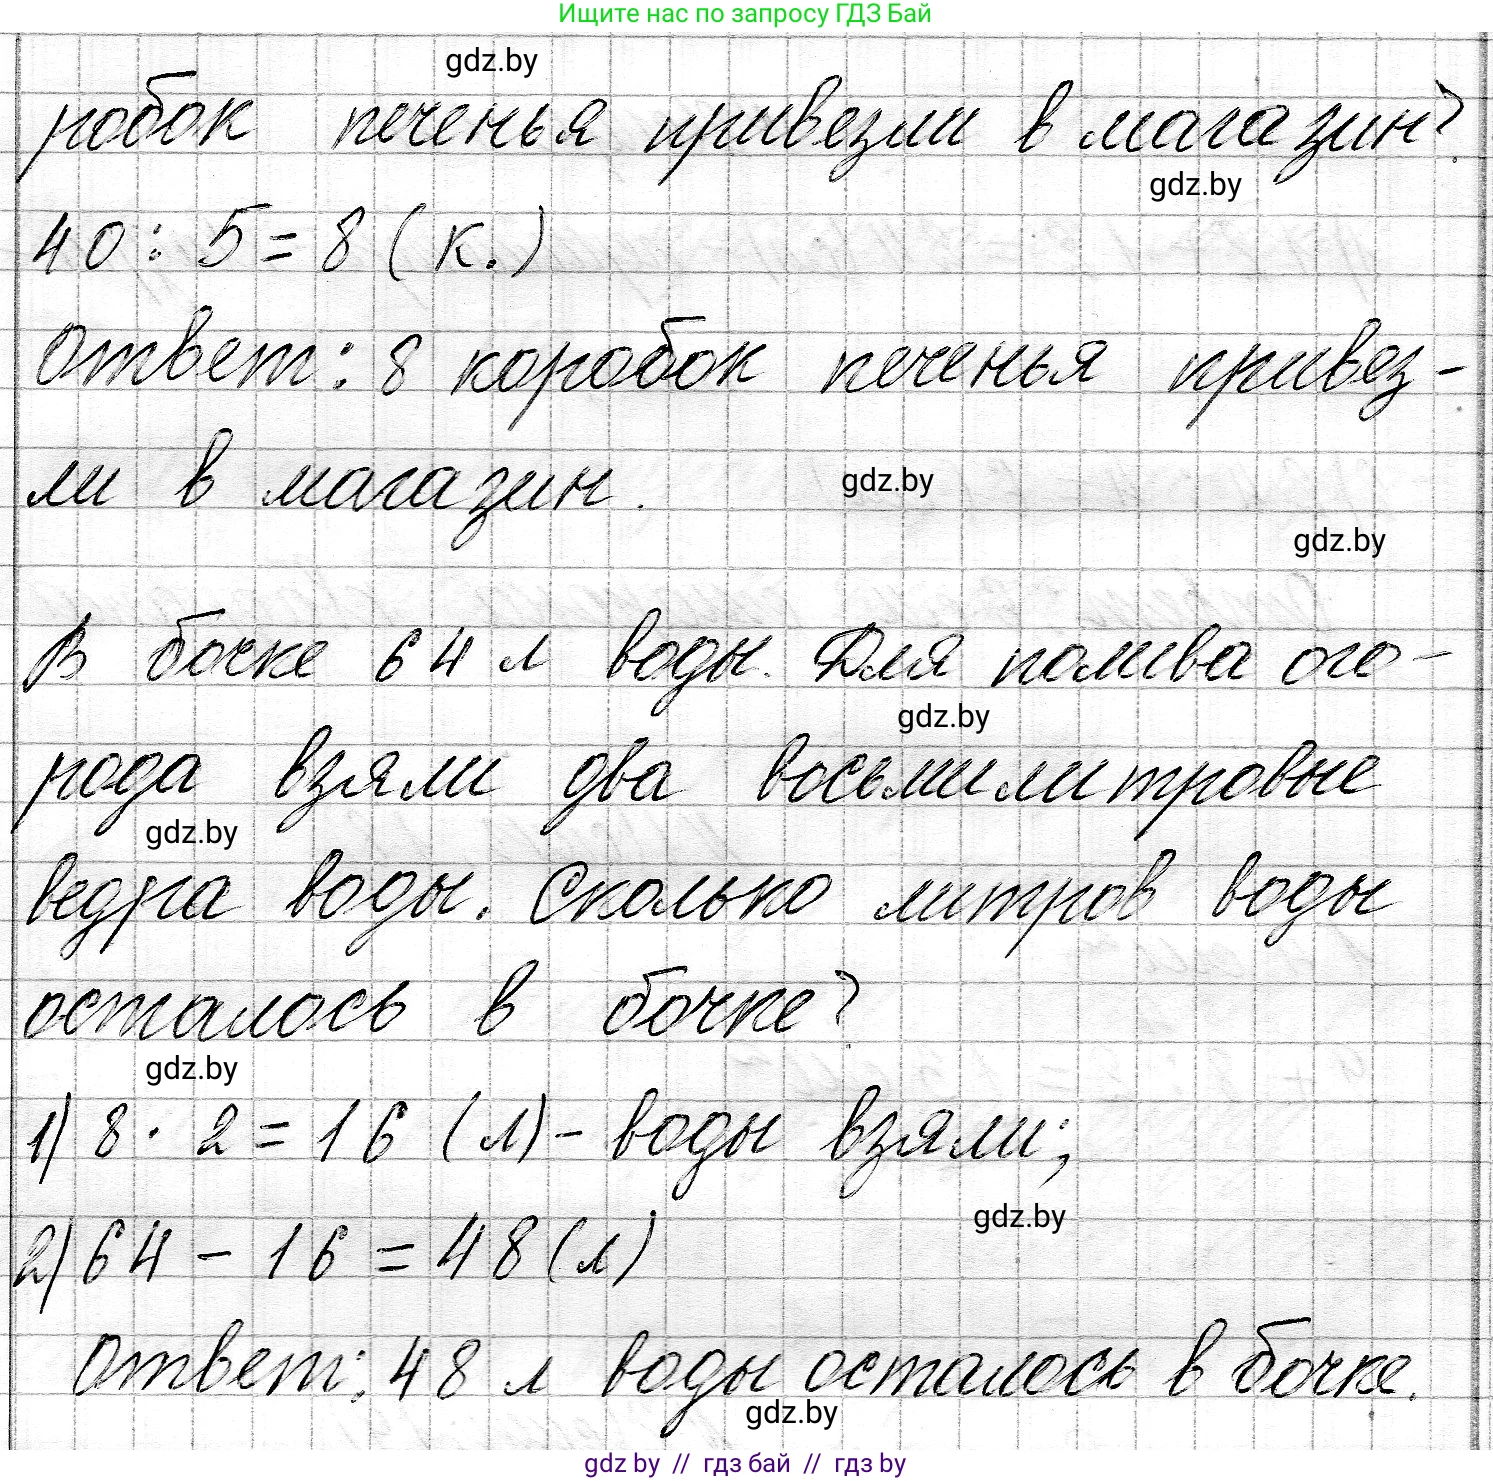 Ищите нас по запросу ГДЗ Бай
gdz.by
робок печенья привезли в магазин?
gdz.by
40 : 5 = 8 (к.)
Ответ: 8 коробок печенья привез-
ли в магазин.
gdz.by
gdz.by
В бочке 64 л воды. Для полива ого-
gdz.by
рода взяли два восьмилитровые
gdz.by
ведра воды. Сколько литров воды
осталось в бочке?
gdz.by
1) 8 · 2 = 16 (л) - воды взяли;
gdz.by
2) 64 - 16 = 48 (л)
Ответ: 48 л воды осталось в бочке.
gdz.by
gdz by // гдз бай // гдз by